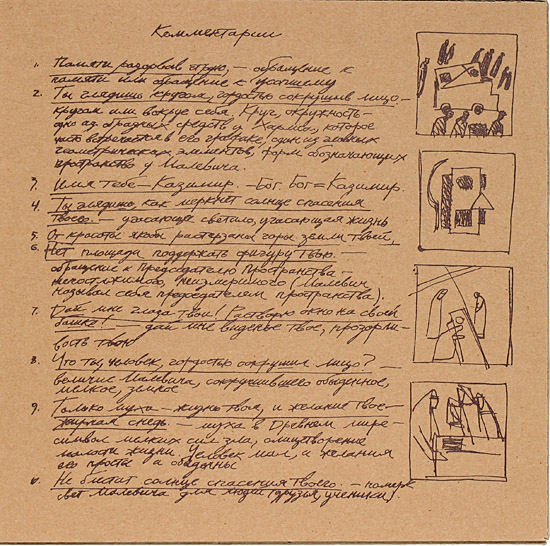 Комментарии
1. Памяти разорвав струю, — обращение к
памяти или обращение к прошлому
2. Ты глядишь кругом, гордостью сокрушив лицо —
кругом или вокруг себя Круг, окружность —
одно из образных средств у Хармса, которое
часто встречается в его графике, один из главных
геометрических элементов, форм обозначающих
пространство у Малевича.
3. Имя тебе — Казимир. — Бог. Бог = Казимир.
4. Ты глядишь, как меркнет солнце спасения
твоего. — угасающее светило, угасающая жизнь
5. От красоты якобы растерзаны горы земли твоей,
6. Нет площади поддержать фигуру твою. —
обращение к Председателю пространства —
непостижимого, неизмеримого (Малевич
называл себя председателем пространства).
7. Дай мне глаза твои! Растворю окно на своей
башке! — дай мне виденье твое, прозорли-
вость твою
8. Что ты, человек, гордостью сокрушил лицо? —
величие Малевича, сокрушившего обыденное,
мелкое, земное
9. Только муха — жизнь твоя, и желание твое —
жирная снедь. — муха в Древнем мире —
символ мелких сил зла, олицетворение
малости жизни. Человек мал, и желания
его просты и обыденны
Не блестит солнце спасения твоего. — померк
свет Малевича для людей (друзья, ученики)